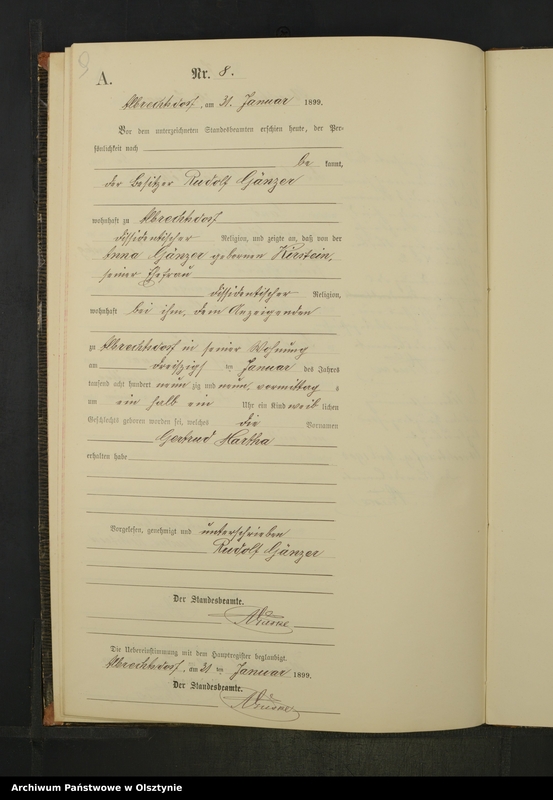 9
A.
Nr. 8.
Albrechtsdorf, am 31. Januar 1899.
Vor dem unterzeichneten Standesbeamten erschien heute, der Per-
sönlichkeit nach
be kannt,
der Besitzer Rudolf Gänzer
wohnhaft zu Albrechtsdorf
dissidentischer Religion, und zeigte an, daß von der
Anna Gänzer gebornen Kirstein,
seiner Ehefrau
dissidentischer Religion,
wohnhaft bei ihm, dem Anzeigenden
zu Albrechtsdorf in seiner Wohnung
am dreißigs ten Januar des Jahres
tausend acht hundert neun zig und neun, vormittag s
um ein halb ein Uhr ein Kind weib lichen
Geschlechts geboren worden sei, welches die Vornamen
Gertrud Martha
erhalten habe
Vorgelesen, genehmigt und unterschrieben
Rudolf Gänzer
Der Standesbeamte.
Die Uebereinstimmung mit dem Hauptregister beglaubigt.
Albrechtsdorf, am 31 ten Januar 1899.
Der Standesbeamte.
Archiwum Państwowe w Olsztynie